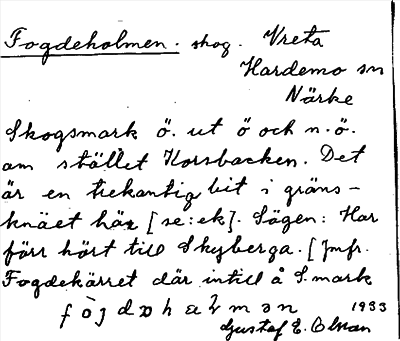 Fogdeholmen. skog. Vreta
Hardemo sn
Närke
Skogsmark ö. ut ö och n.ö.
om stället Korsbacken. Det
är en trekantig bit i gräns-
knäet här [se:ek]. Sägen: Har
förr hört till Skyberga. [Jmfr.
Fogdekärret där intill å S.mark
1933
Gustaf E.